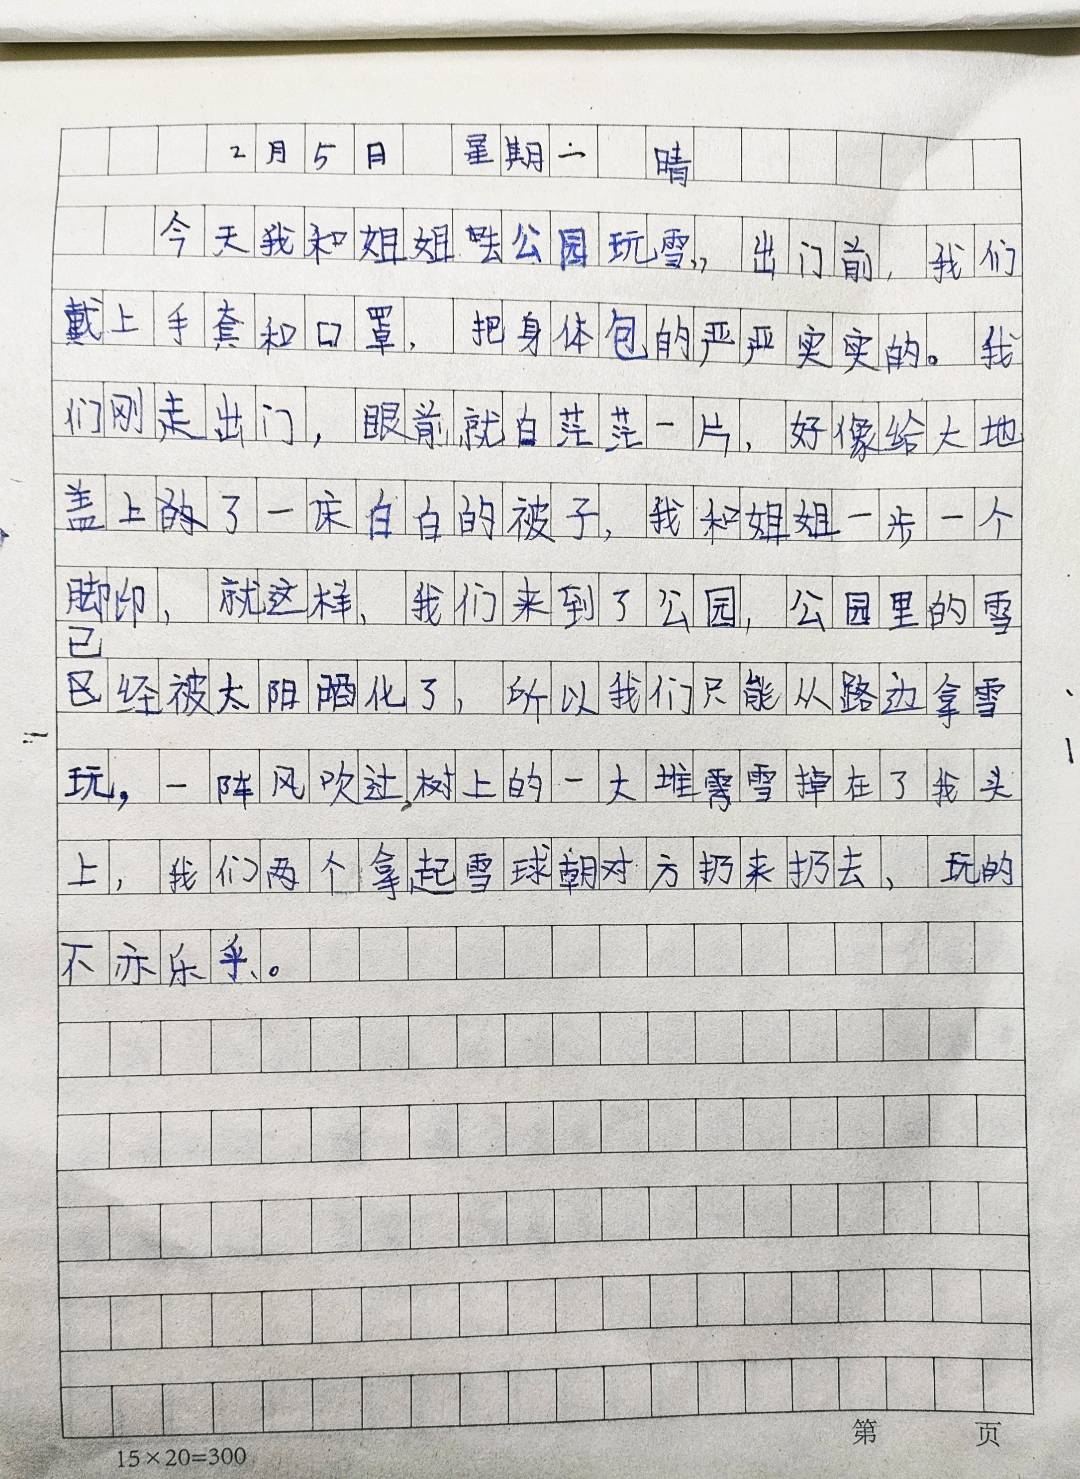 2月5日 星期一 晴
今天我和姐姐去公园玩雪,,出门前,我们
戴上手套和口罩,把身体包的严严实实的。我
们刚走出门,眼前就白茫茫一片,好像给大地
盖上了一床白白的被子,我和姐姐一步一个
脚印,就这样、我们来到了公园,公园里的雪
已
经被太阳晒化了,所以我们只能从路边拿雪
玩,一阵风吹过,树上的一大堆雪掉在了我头
上,我们两个拿起雪球朝对方扔来扔去、玩的
不亦乐乎、。
第 页
15×20=300